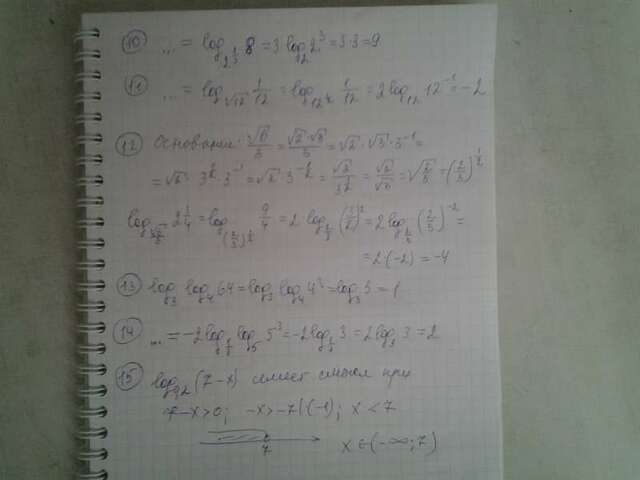 10 ... = log_{2^{1/3}} 8 = 3 log_2 2^3 = 3·3 = 9
11 ... = log_{√12} 1/12 = log_{12^{1/2}} 1/12 = 2 log_{12} 12^{-1} = -2
12 Основание: √6/3 = √2·√3/3 = √2 · √3 · 3^{-1} =
= √2 · 3^{1/2} · 3^{-1} = √2 · 3^{-1/2} = √2/3^{1/2} = √2/√3 = √(2/3) = (2/3)^{1/2}
log_{√6/3} 2 1/4 = log_{(2/3)^{1/2}} 9/4 = 2 log_{2/3} (3/2)^2 = 2 log_{2/3} (2/3)^{-2} =
= 2(-2) = -4
13 log_3 log_4 64 = log_3 log_4 4^3 = log_3 3 = 1
14 ... = -2 log_{1/3} log_5 5^3 = -2 log_{1/3} 3 = 2 log_3 3 = 2
15 log_{0,2} (7-x) имеет смысл при
7-x>0; -x>-7 |(-1); x<7
7
x∈(-∞;7)